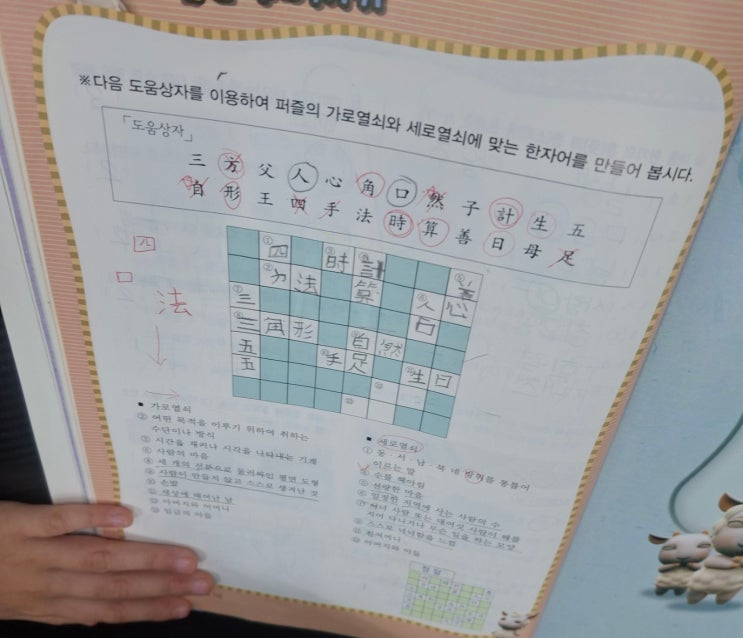 ※다음 도움상자를 이용하여 퍼즐의 가로열쇠와 세로열쇠에 맞는 한자어를 만들어 봅시다.
「도움상자」
三 方 父 人 心 角 口 然 子 計 生 五
自 形 王 四 手 法 時 算 善 日 母 足
四
口
法
① 四 ③ 時 ④ 計
② 方 法 算 ⑤ 善
⑦ 三 ⑥ 人 心
⑧ 三 角 形 口
五 自 然
五 手 足 生 日
■ 가로열쇠
② 어떤 목적을 이루기 위하여 취하는
수단이나 방식
③ 시간을 재거나 시각을 나타내는 기계
⑥ 사람의 마음
⑧ 세 개의 선분으로 둘러싸인 평면 도형
⑨ 사람이 만들지 않고 스스로 생겨난 것
⑩ 손발
⑪ 세상에 태어난 날
⑫ 아버지와 어머니
⑬ 임금의 아들
■ 세로열쇠
① 동·서·남·북 네 방위를 통틀어
이르는 말
④ 수를 헤아림
⑤ 선량한 마음
⑥ 일정한 지역에 사는 사람의 수
⑦ 서너 사람 또는 대여섯 사람이 떼를
지어 다니거나 무슨 일을 하는 모양
⑨ 스스로 넉넉함을 느낌
아버지와 아들
정답